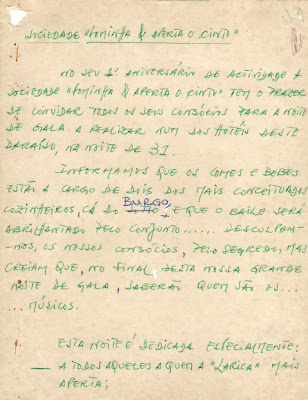 SOCIEDADE "FOMINHA & APERTA O CINTO"
NO SEU 1º ANIVERSÁRIO DE ACTIVIDADE A
SOCIEDADE "FOMINHA & APERTA O CINTO" TEM O PRAZER
DE CONVIDAR TODOS OS SEUS CONSÓCIOS PARA A NOITE
DE GALA A REALIZAR NUM DOS HOTÉIS DESTE
PARAÍSO, NA NOITE DE 31.
INFORMAMOS QUE OS COMES E BEBES
ESTÃO A CARGO DE DOIS DOS MAIS CONCEITUADOS
BURGO,
COZINHEIROS, CÁ DO E QUE O BAILE SERÁ
ABRILHANTADO PELO CONJUNTO...... DESCULPEM-
-NOS, OS NOSSOS CONSÓCIOS, PELO SEGREDO, MAS
CREIAM QUE, NO FINAL DESTA NOSSA GRANDE
NOITE DE GALA, SABERÃO QUEM SÃO OS...
... MÚSICOS.
ESTA NOITE É DEDICADA ESPECIALMENTE:
— A TODOS AQUELES A QUEM A "LARICA" MAIS
APERTA;